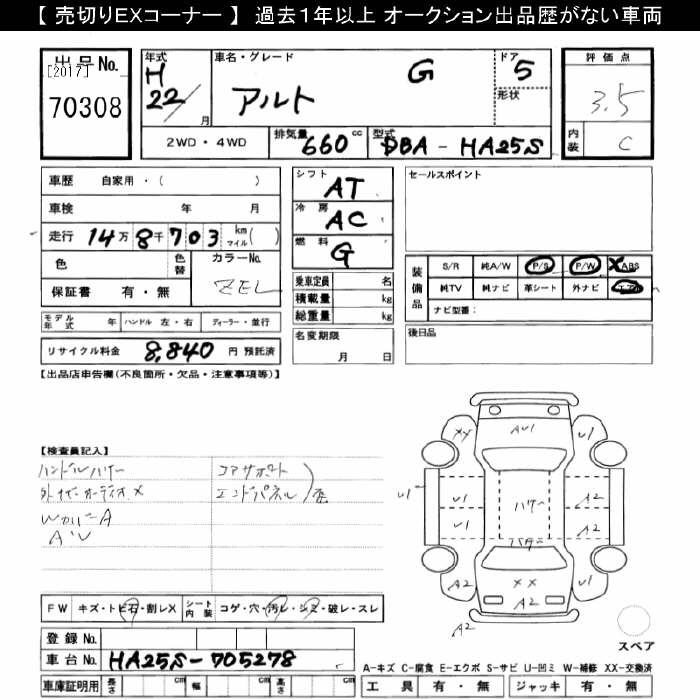 【 売切りEXコーナー 】 過去１年以上 オークション出品歴がない車両
出 品 No.
[2017]
70308
年式
H
22/
月
車名・グレード
アルト
G
ドア
5
形状
評 価 点
3.5
内装
C
2WD・4WD
排気量
660 cc
型式
DBA - HA25S
車歴 自家用・( )
車検 年 月
走行 14万8千703 km マイル( )
色
色替
カラーNo.
ZEL
保証書 有・無
シフト
AT
冷房
AC
燃料
G
乗車定員 名
積載量 kg
総重量 kg
名変期限
月 日
セールスポイント
装備品
S/R 純A/W P/S P/W ABS
純TV 純ナビ 革シート 外ナビ エアB
ナビ型番:
後日品
モデル年式 年 ハンドル 左・右 ディーラー・並行
リサイクル料金 8,840 円 預託済
【出品店申告欄(不良箇所・欠品・注意事項等)】
【検査員記入】
ハンドルハゲー
外ナビーオーディオ×
Wカバー A
A'U
コアサポート
エンドパネル
歴
XX
AU1
U1
U1
U1
U1
ハゲー
A2
A2
A2
A2
××
A2
A2
A2
FW キズ・トビ石・割レX シート内装 コゲ・穴・汚レ・シミ・破レ・スレ
登録 No.
車台 No. HA25S-705278
車庫証明用 長さ cm 幅 cm 高さ cm
スペア
A-キズ C-腐食 E-エクボ S-サビ U-凹ミ W-補修 XX-交換済
工 具 有・無 ジャッキ 有・無